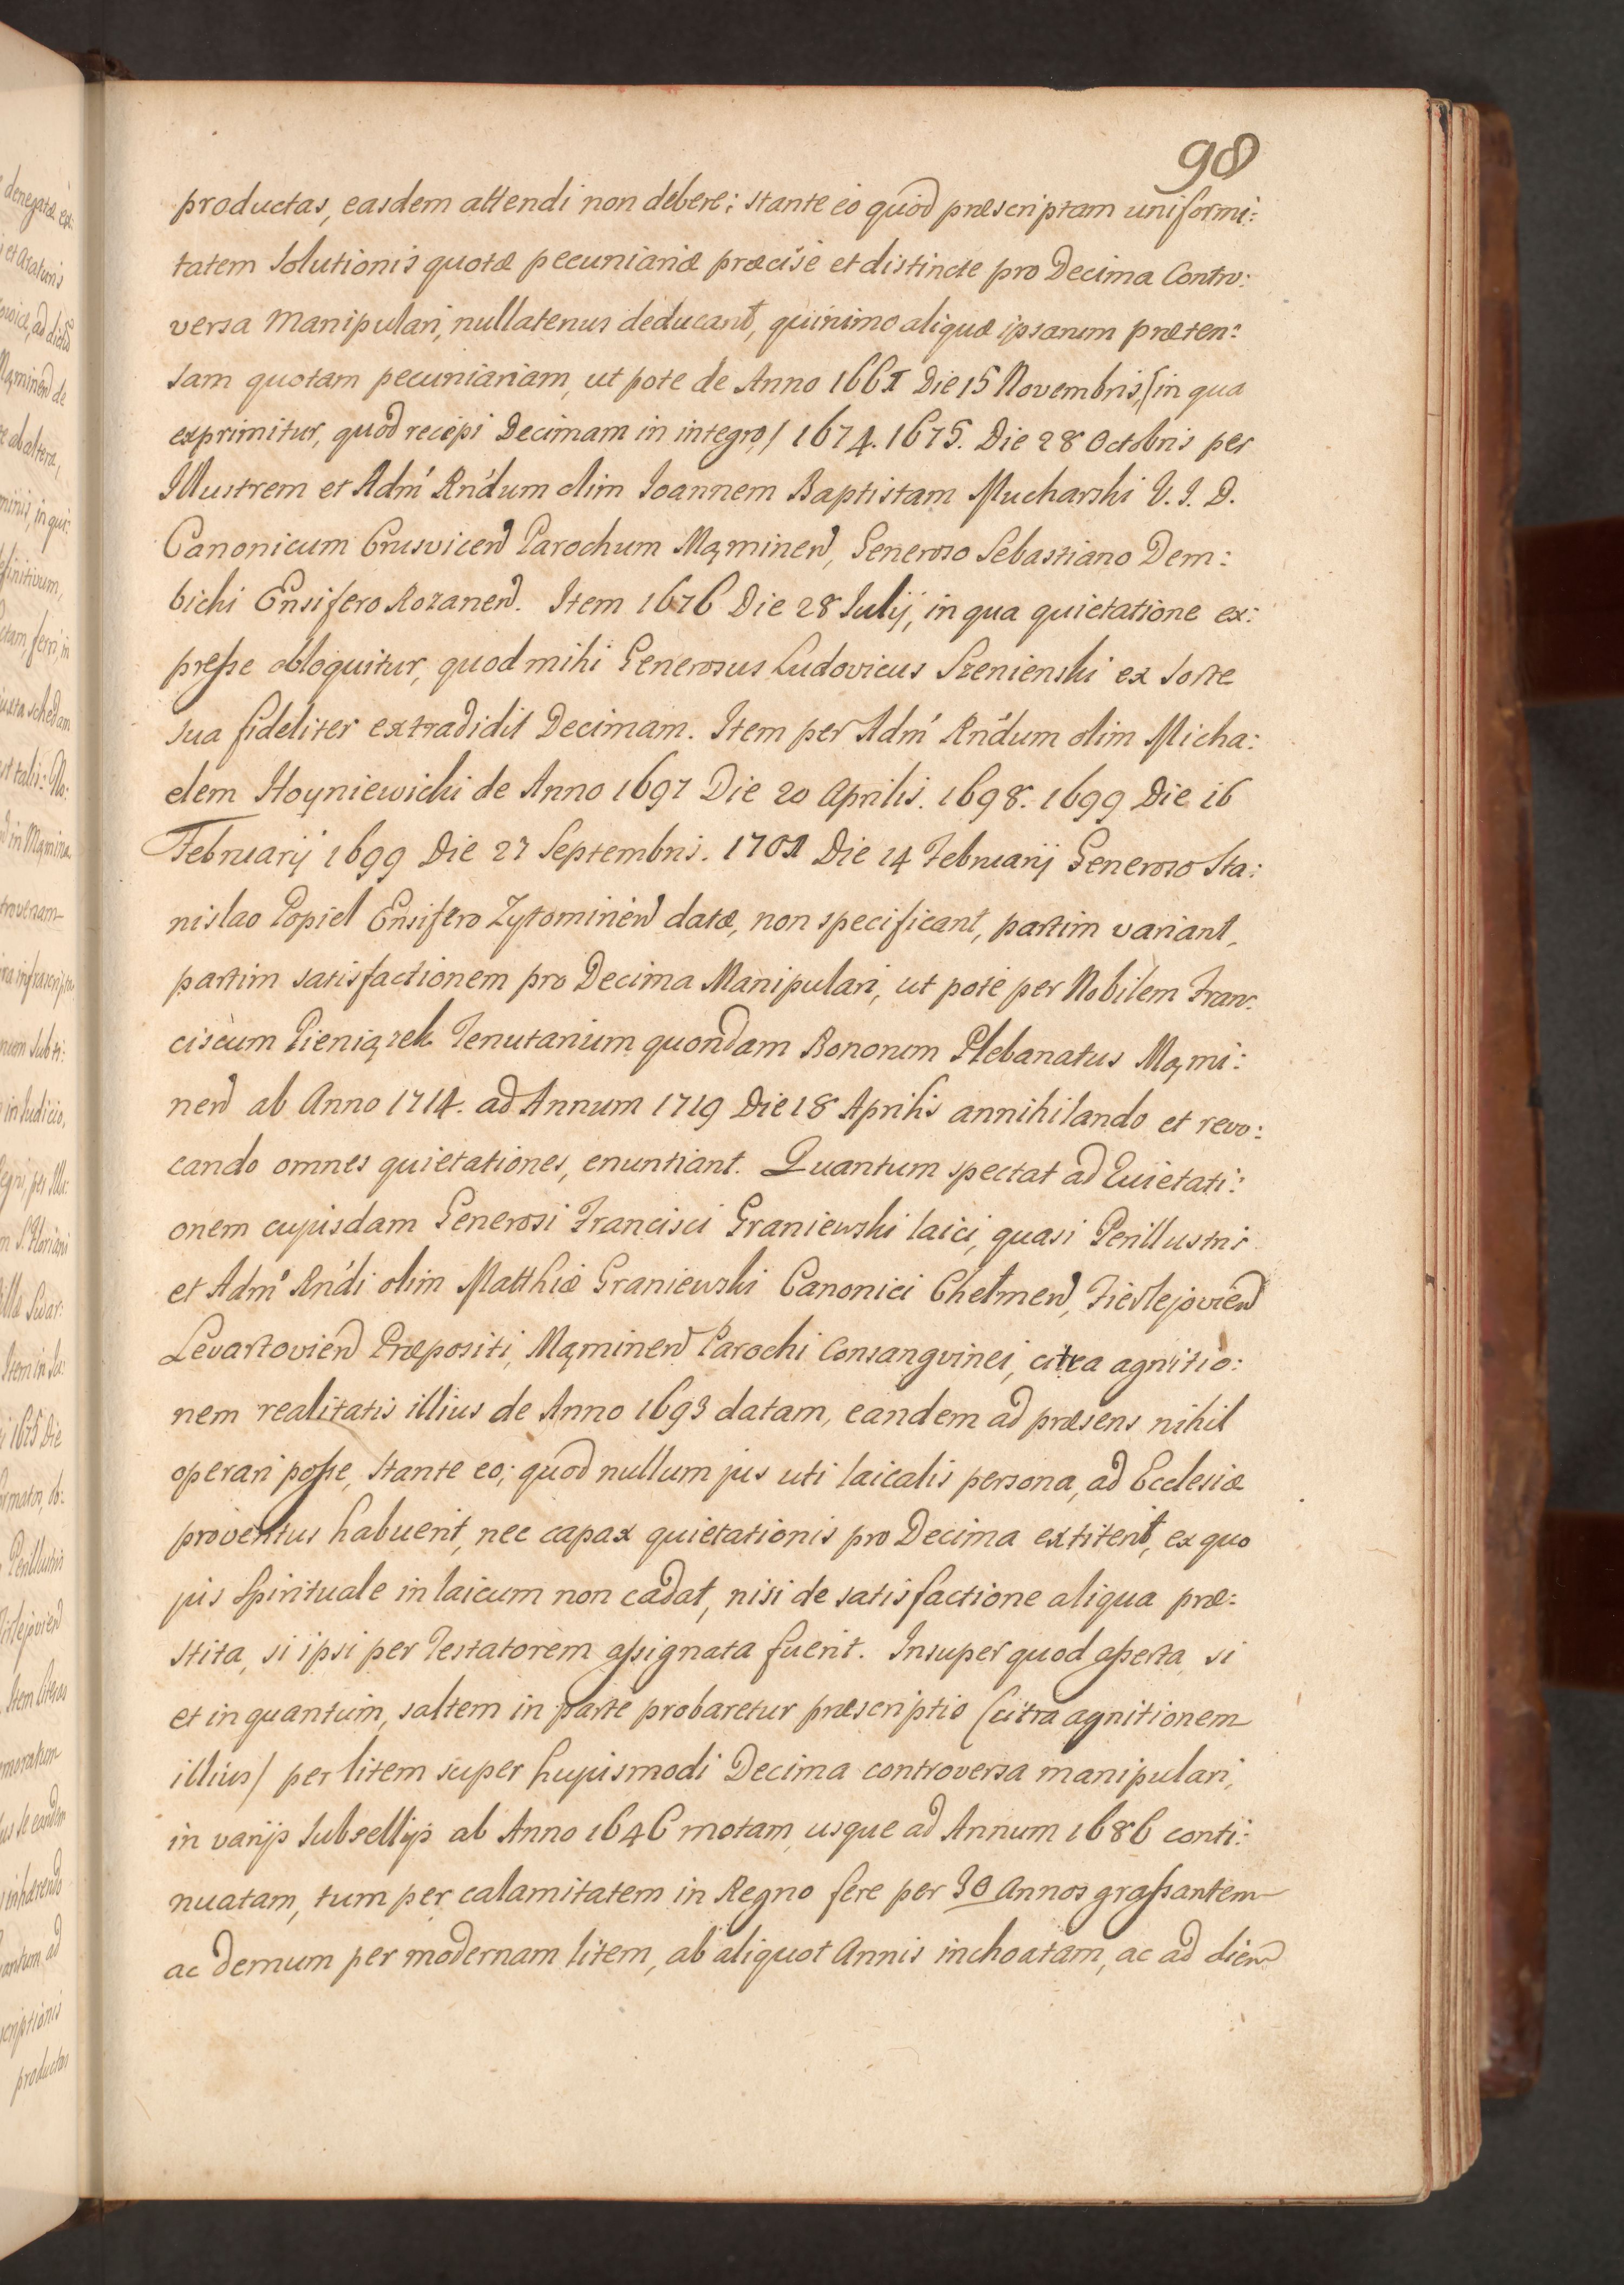 98
productas, easdem attendi non debere; stante eo quòd præscriptam uniformi:
tatem solutionis quotæ pecuniariæ præcisè et distincte pro Decima Contro:
versa Manipulari, nullatenus deducant, quinimo aliquæ ipsarum præten:
sam quotam pecuniariam, ut pote de Anno 1661 Die 15 Novembris, (in qua
exprimitur, quòd recepi Decimam in integro,) 1674. 1675. Die 28 Octobris per
Illustrem et Adm' Rn'dum olim Ioannem Baptistam Mucharski V. I. D.
Canonicum Crusvicen Parochum Mąminen, Generoso Sebastiano Dem:
bichi Ensifero Rozanen. Item 1676 Die 28 Iulij, in qua quietatione ex:
presse obloquitur, quod mihi Generosus Ludovicus Szenienski ex sorte
sua fideliter extradidit Decimam. Item per Adm' Rn'dum olim Micha:
elem Hoyniewichi de Anno 1697 Die 20 Aprilis. 1698. 1699 Die 16
Februarij 1699 Die 27 Septembris. 1701 Die 14 Februarij Generoso Sta:
nislao Popiel Ensifero Zytominen datæ, non specificant, partim variant,
partim satisfactionem pro Decima Manipulari, ut pote per Nobilem Fran:
ciscum Pieniązek Tenutarium quondam Bonorum Plebanatus Mąmi:
nen ab Anno 1714. ad Annum 1719 Die 18 Aprilis annihilando et revo:
cando omnes quietationes, enuntiant. Quantum spectat ad Quietati:
onem cujusdam Generosi Francisci Graniewski laici, quasi Perillustri
et Adm' Rn'di olim Matthiæ Graniewski Canonici Chełmen, Firlejovien
Levartovien Præpositi, Mąminen Parochi Consangvinei, citra agnitio:
nem realitatis illius de Anno 1693 datam, eandem ad præsens nihil
operari posse, stante eo; quòd nullum jus uti laicalis persona, ad Ecclesiæ
proventus habuerit, nec capax quietationis pro Decima extiterit, ex quo
jus spirituale in laicum non cadat, nisi de satisfactione aliqua præ:
stita, si ipsi per Testatorem assignata fuerit. Insuper quod asserta, si
et in quantum, saltem in parte probaretur præscriptio (citra agnitionem
illius) per litem super hujusmodi Decima controversa manipulari,
in varijs Subsellijs ab Anno 1646 motam, usque ad Annum 1686 conti:
nuatam, tum per calamitatem in Regno fere per 30 Annos grassantem
ac demum per modernam litem, ab aliquot Annis inchoatam, ac ad diem